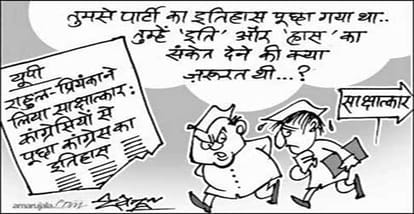 तुमसे पार्टी का इतिहास पूछा गया था..
तुम्हें 'इति' और 'ह्रास' का
संकेत देने की क्या
ज़रूरत थी...?
यूपी
राहुल-प्रियंका ने
लिया साक्षात्कार:
कांग्रेसियों से
पूछा कांग्रेस का
इतिहास
साक्षात्कार
amarujala.com